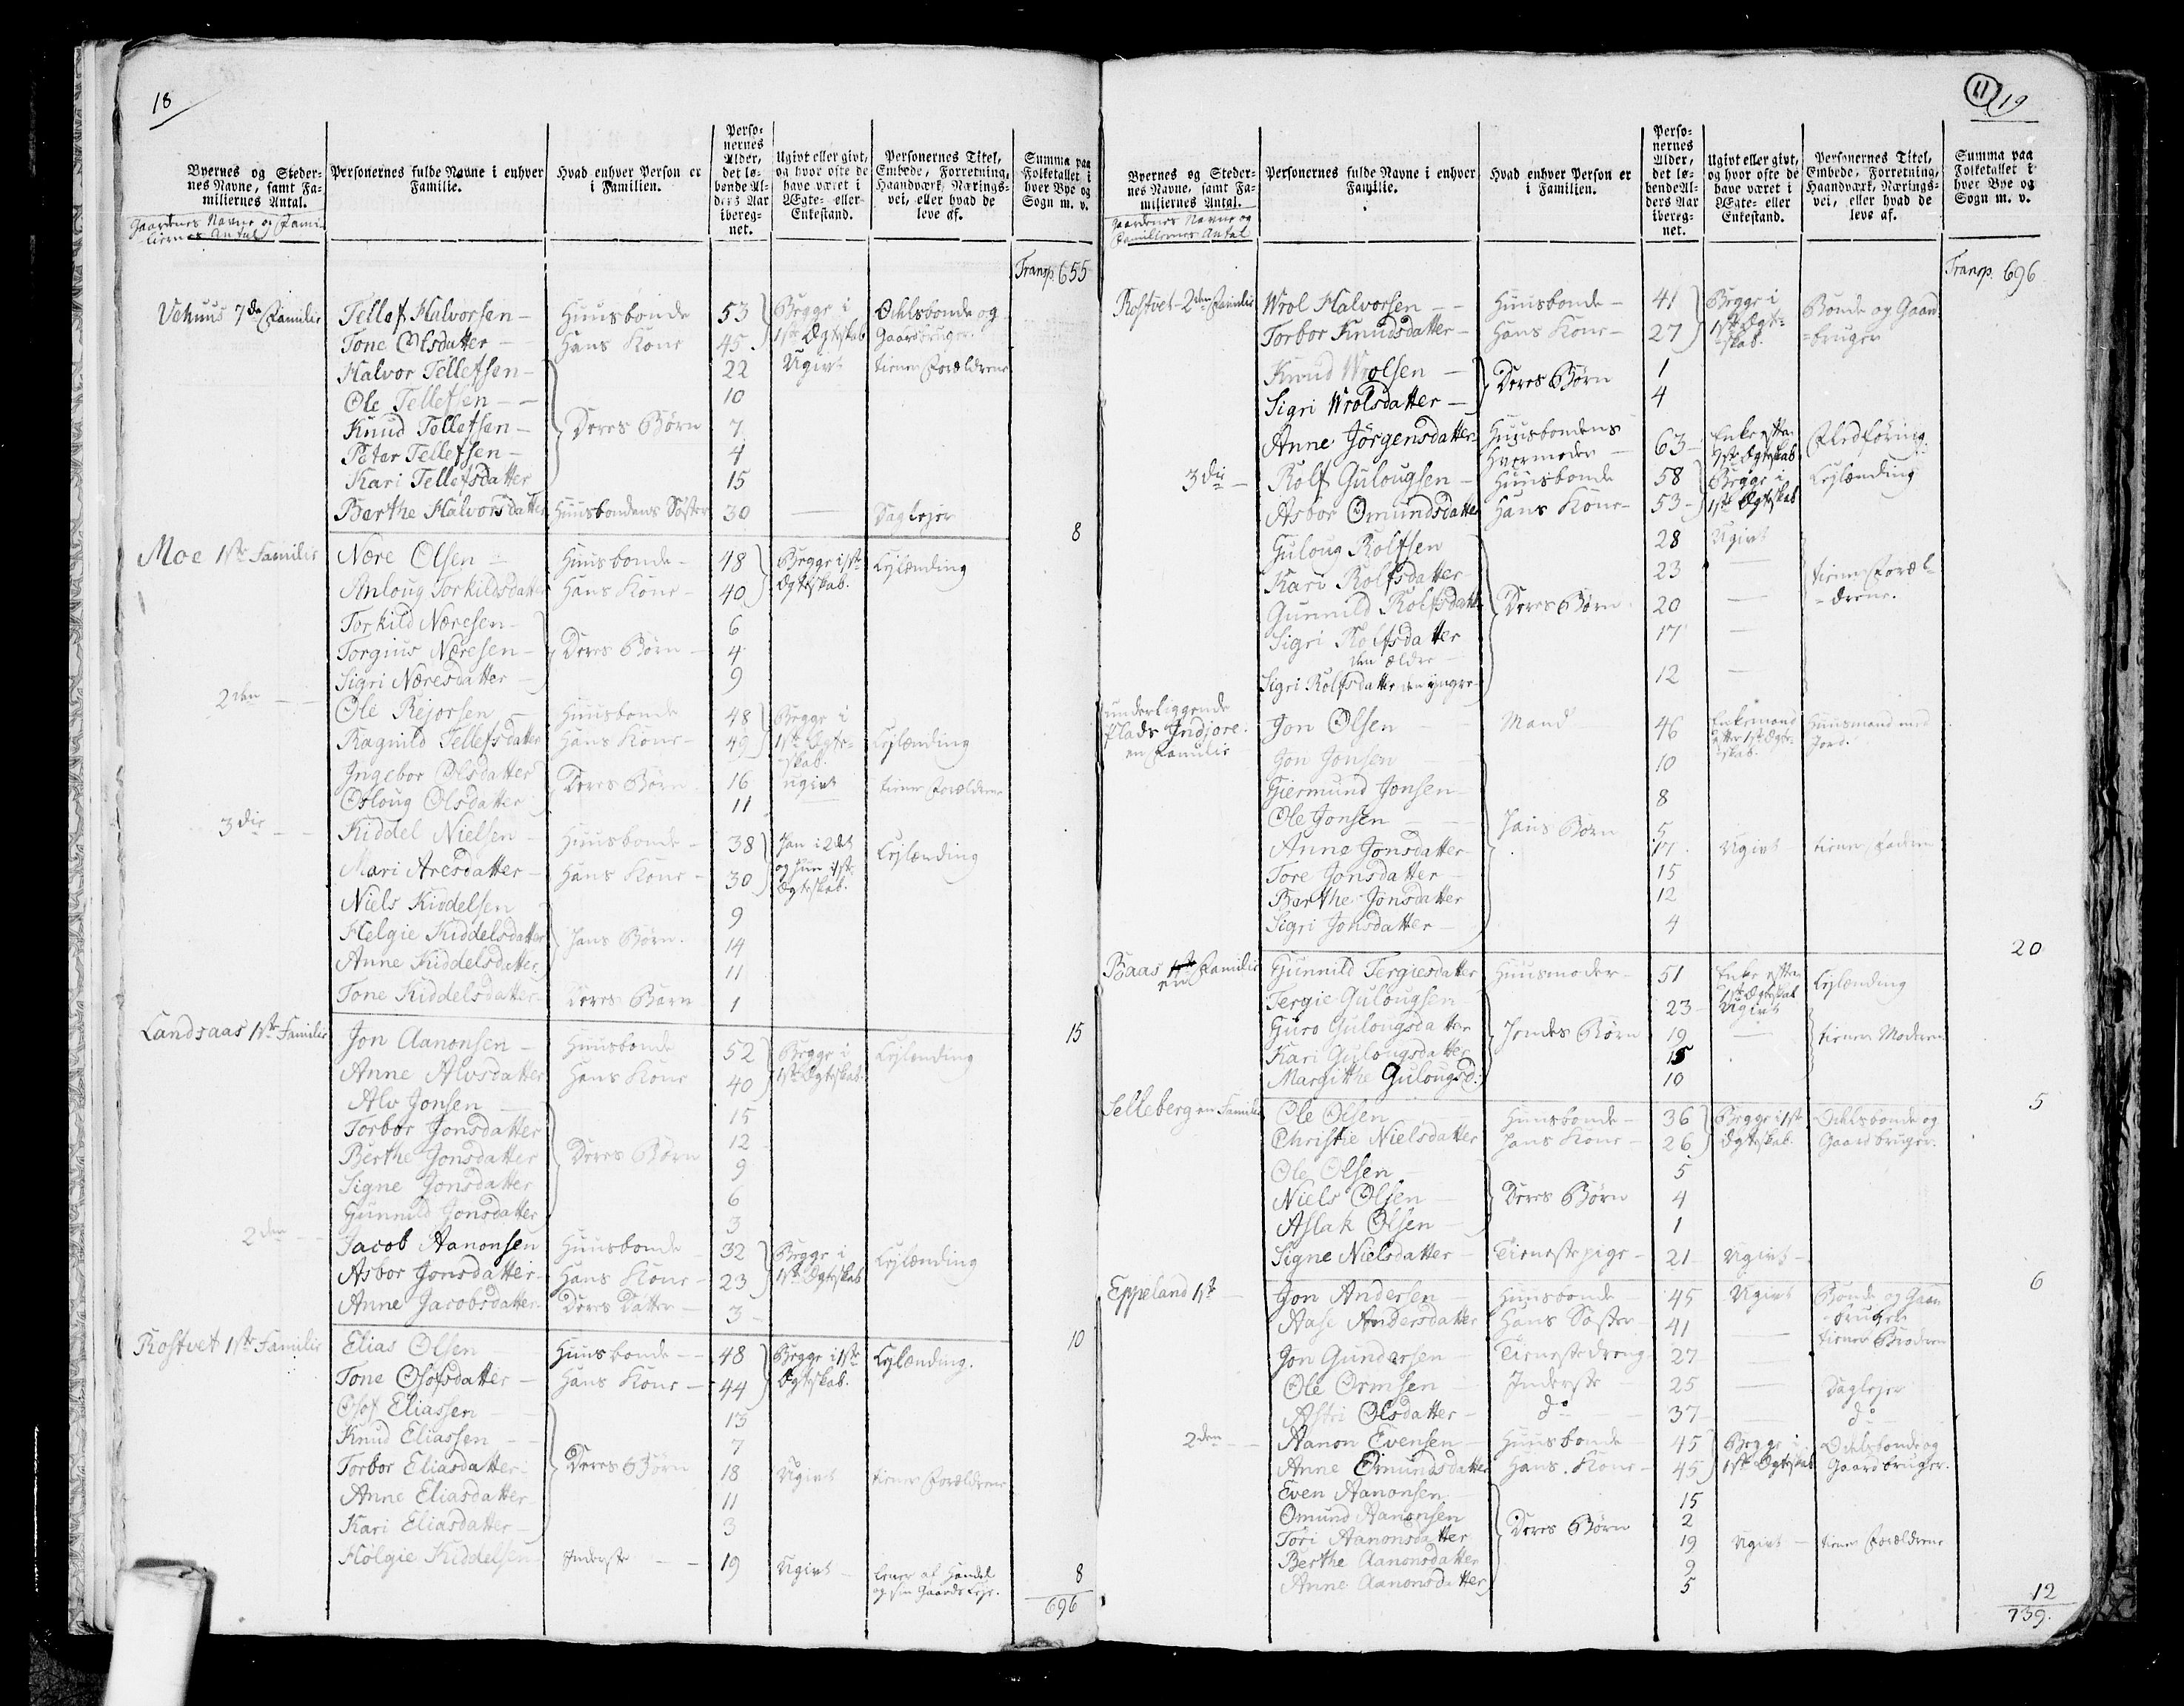 18
Byernes og Steder-
nes Navne, samt Fa-
miliernes Antal.
Gaardenes Navne og Fami-
liernes Antal
Personernes fulde Navne i enhver
Familie.
Hvad enhver Person er
i Familien.
Perso-
nernes
Alder,
det lø-
bende Al-
ders Aar
ibereg-
net.
Ugivt eller givt,
og hvor ofte de
have været i
Ægte- eller
Enkestand.
Personernes Titel,
Embede, Forretning,
Haandværk, Nærings-
vei, eller hvad de
leve af.
Summa paa
Folketallet i
hver Bye og
Sogn m. v.
Transp. 655
Vehuus 7de Familie Tellef Halvorsen Huusbonde 53 Begge i Odelsbonde og
Tone Olsdatter Hans Kone 45 1ste Ægteskab Gaardbruger.
Halvor Tellefsen 22 Ugivt tiener Forældrene
Ole Tellefsen 10
Knud Tellefsen Deres Børn 7
Peter Tellefsen 4
Kari Tellefsdatter 15
Berthe Halvorsdatter Huusbondens Søster 30 Daglejer
8
Moe 1ste Familie Nere Olsen Huusbonde 48 Begge i 1ste Lejlænding
Anloug Torkildsdatter Hans Kone 40 Ægteskab.
Torkild Neresen 6
Torgius Neresen Deres Børn 4
Sigri Neresdatter 9
2den Ole Rejorsen Huusbonde 48 Begge i
Ragnild Tellefsdatter Hans Kone 49 1ste Ægte- Lejlænding
skab.
Ingebor Olsdatter Deres Børn 16 ugivt tiener Forældrene
Osloug Olsdatter 11
3die Kiddel Nielsen Huusbonde 38 Han i 2det Lejlænding
Mari Aresdatter Hans Kone 30 og hun i 1ste
Ægteskab.
Niels Kiddelsen 9
Helgie Kiddelsdatter Hans Børn 14
Anne Kiddelsdatter 11
Tone Kiddelsdatter Deres Barn 1
15
Landsaas 1ste Familie Jon Aanonsen Huusbonde 52 Begge i Lejlænding
Anne Alvsdatter Hans Kone 40 1ste Ægteskab.
Alv Jonsen 15
Torbor Jonsdatter 12
Berthe Jonsdatter Deres Børn 9
Signe Jonsdatter 6
Gunnild Jonsdatter 3
2den Jacob Aanonsen Huusbonde 32 Begge i Lejlænding
Asbor Jonsdatter Hans Kone 23 1ste Ægteskab
Anne Jacobsdatter Deres Datter 3
10
Rostvet 1ste Familie Elias Olsen Huusbonde 48 Begge i 1ste Lejlænding.
Tone Olofsdatter Hans Kone 44 Ægteskab.
Olof Eliassen 13
Knud Eliassen 7
Torbor Eliasdatter Deres Børn 18 Ugivt tiener Forældrene
Anne Eliasdatter 11
Kari Eliasdatter 3
Hølgie Kiddelsen Inderste 19 Ugivt lever af Handel
og sin Gaards Leje.
8
696
11 19
Byernes og Steder-
nes Navne, samt Fa-
miliernes Antal.
Gaardenes Navne og
Familiernes Antal
Personernes fulde Navne i enhver
Familie.
Hvad enhver Person er
i Familien.
Perso-
nernes
Alder,
det lø-
bende Al-
ders Aar
ibereg-
net.
Ugivt eller givt,
og hvor ofte de
have været i
Ægte- eller
Enkestand.
Personernes Titel,
Embede, Forretning,
Haandværk, Nærings-
vei, eller hvad de
leve af.
Summa paa
Folketallet i
hver Bye og
Sogn m. v.
Transp. 696
Rostvet 2den Familie Wrol Halvorsen Huusbonde 41 Begge i Bonde og Gaard
Torbor Knudsdatter Hans Kone 27 1ste Ægte- -bruger
skab.
Knud Wrolsen Deres Børn 1
Sigri Wrolsdatter 4
Anne Jörgensdatter Huusbondens 63 Enke efter Fledføring
Svermoder 1ste Ægteskab
3die Rolf Gulougsen Huusbonde 58 Begge i Lejlænding
Asbor Omundsdatter Hans Kone 53 1ste Ægteskab
Guloug Rolfsen 28 Ugivt
Kari Rolfsdatter 23 tiener Foræl-
Gunnild Rolfsdatter Deres Børn 20 -drene.
Sigri Rolfsdatter 17
den ældre
Sigri Rolfsdatter den yngre 12
underliggende
Plads Indjore Jon Olsen Mand 46 Enkemand Huusmand med
en Familie efter 1ste Ægte- Jord.
skab.
Jon Jonsen 10
Giermund Jonsen 8
Ole Jonsen Hans Børn 5
Anne Jonsdatter 17 Ugivt tiener Faderen
Tore Jonsdatter 15
Berthe Jonsdatter 12
Sigri Jonsdatter 4
20
Baas en Familie Gunnild Tergiesdatter Huusmoder 51 Enke efter Lejlænding
1ste Ægteskab
Tergie Gulougsen 23 Ugivt
Guro Gulougsdatter Hendes Børn 19 tiener Moderen
Kari Gulougsdatter 15
Margithe Gulougsd: 10
5
Selleberg en Familie Ole Olsen Huusbonde 36 Begge i 1ste Odelsbonde og
Christie Nielsdatter Hans Kone 26 Ægteskab. Gaardbruger.
Ole Olsen 5
Niels Olsen Deres Børn 4
Aslak Olsen 1
Signe Nielsdatter Tienestepige 21 Ugivt
6
Eppeland 1ste Jon Andersen Huusbonde 45 Ugivt Bonde og Gaard
bruger
Aase Andersdatter Hans Søster 41 tiener Broderen
Jon Gundersen Tienestedreng 27
Ole Ormsen Inderste 25 Daglejer
Astri Olsdatter do 37 do
2den Aanon Evensen Huusbonde 45 Begge i Odelsbonde og
Anne Omundsdatter Hans Kone 45 1ste Ægteskab Gaardbruger.
Even Aanonsen 15
Omund Aanonsen Deres Børn 2
Tori Aanonsdatter 19 Ugivt tiener Forældrene
Berthe Aanonsdatter 9
Anne Aanonsdatter 5
12
739.